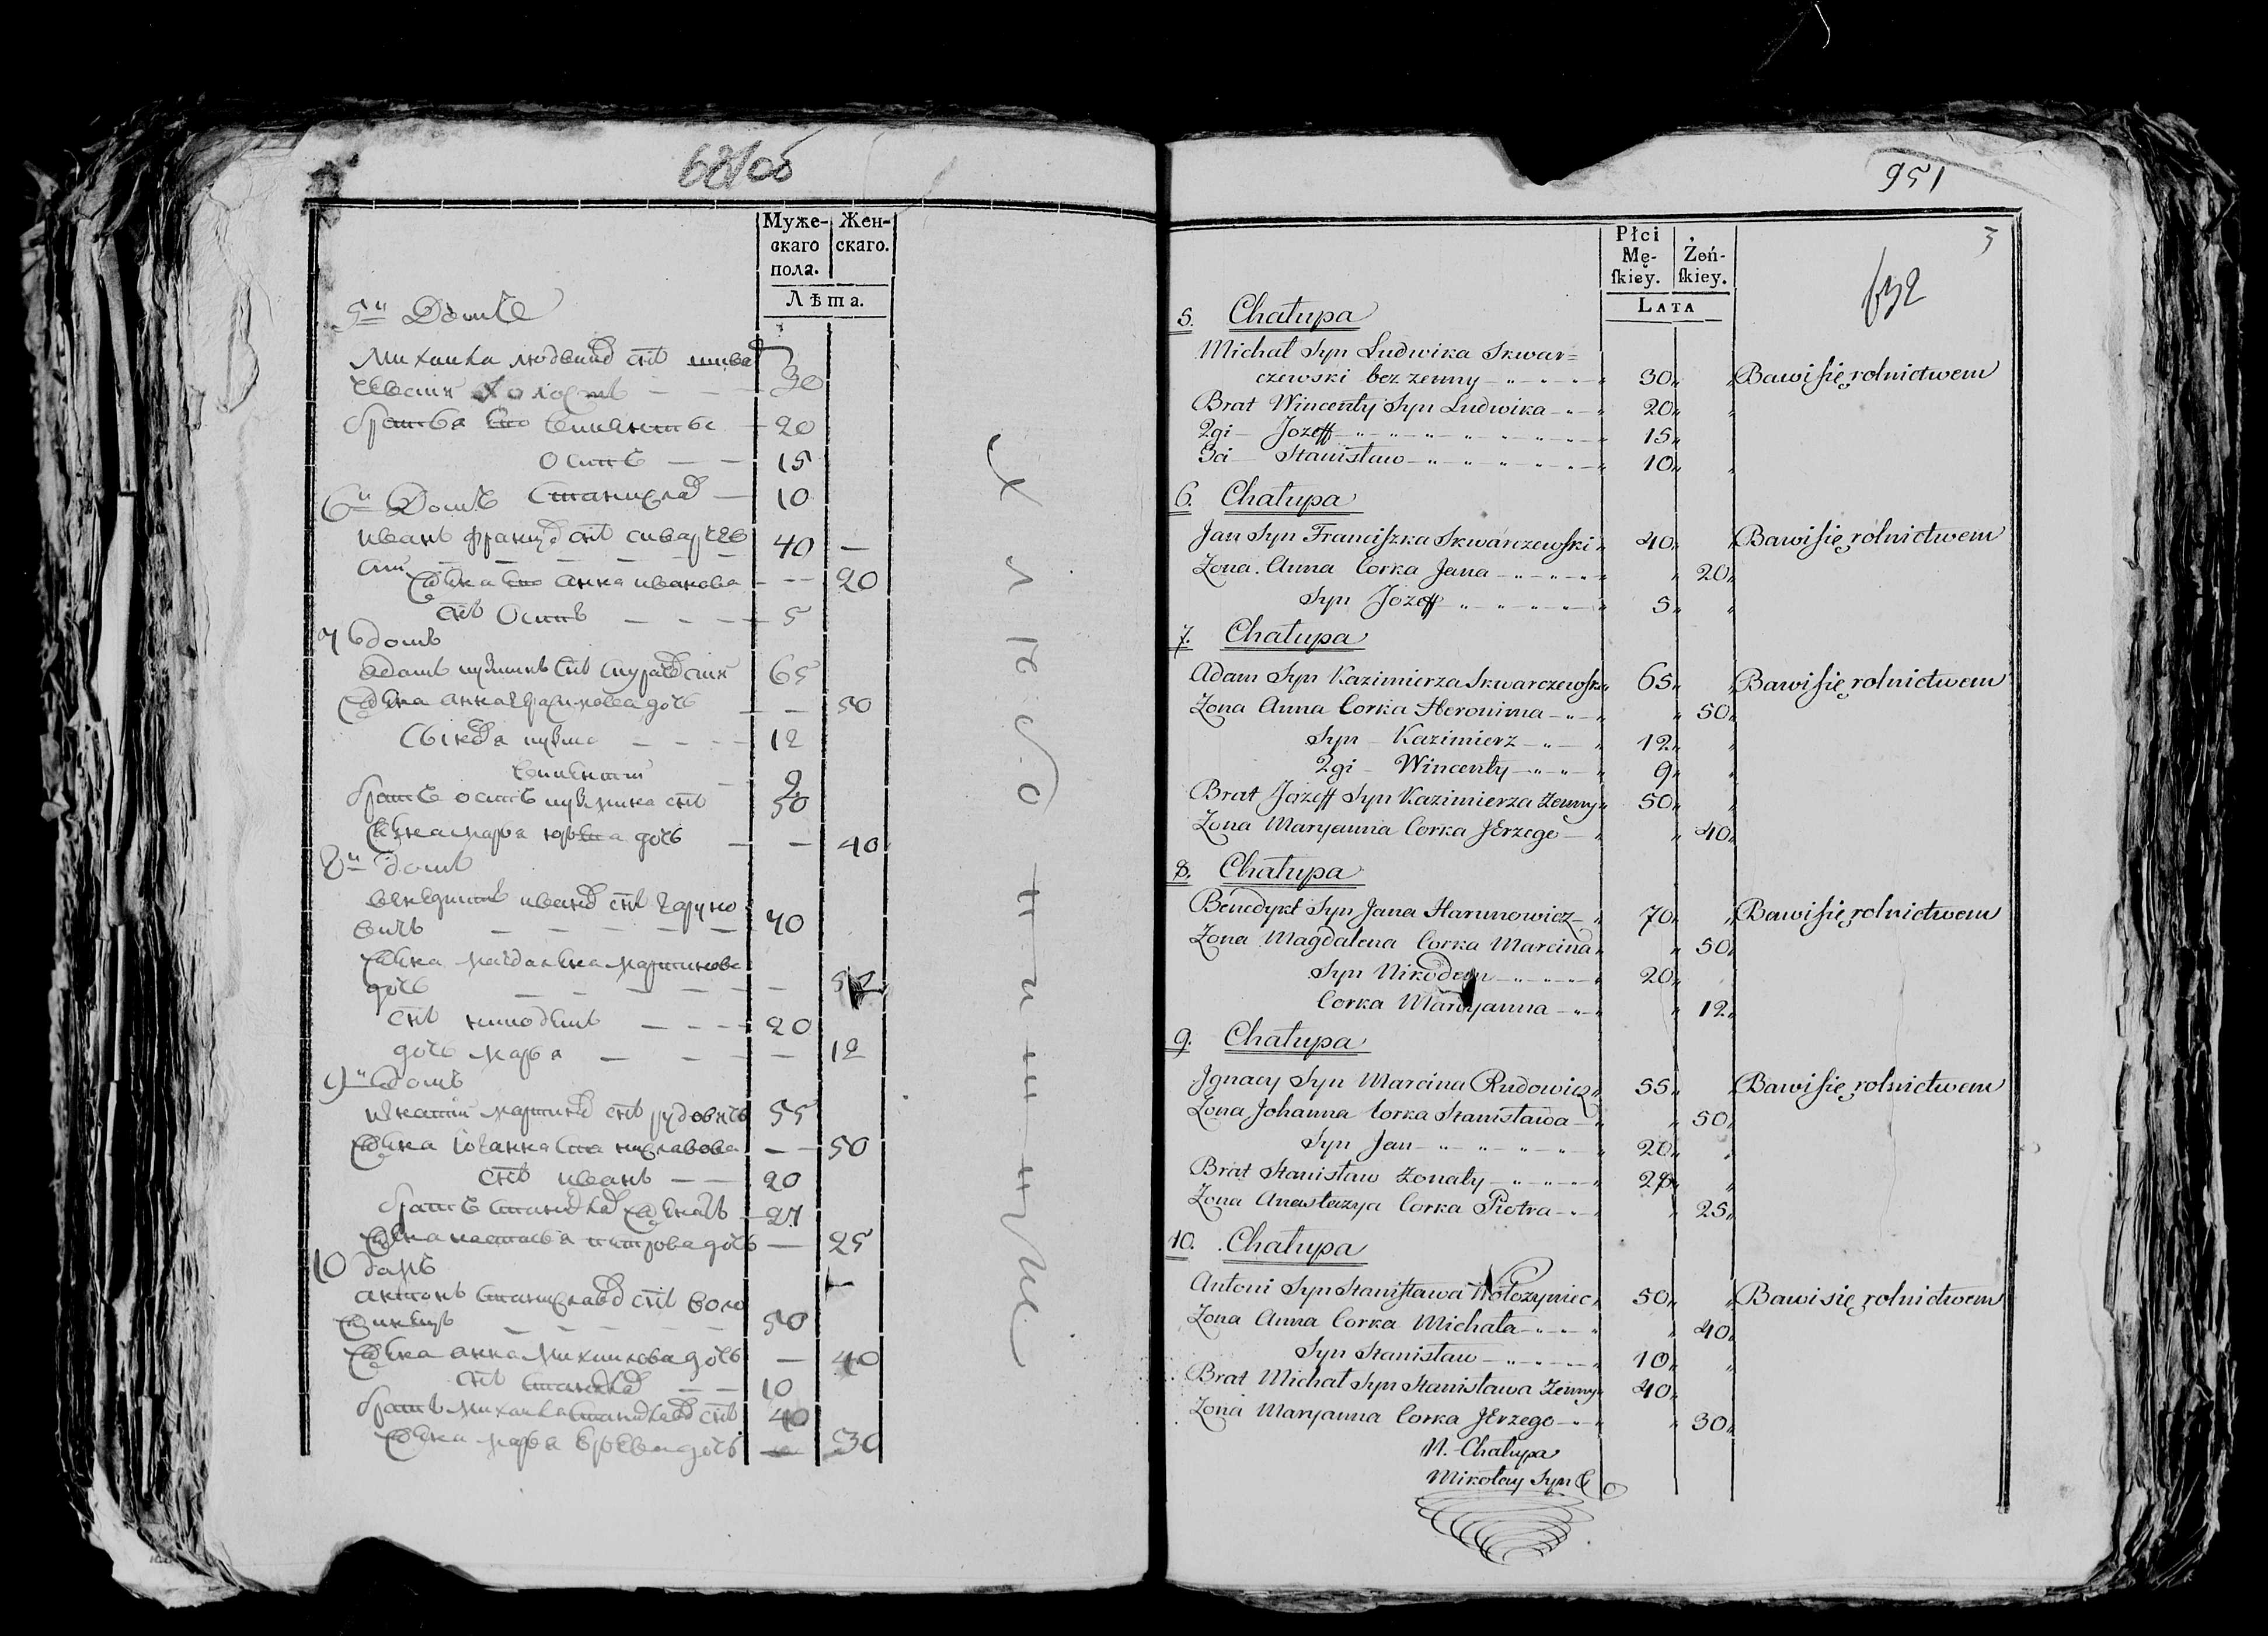 68 об
Муже-
скаго
пола.
Жен-
скаго.
Лѣта.
5й Домъ
Михайла людвикъ снъ
холостъ — — 30
братья его винцентъ — 20
осипъ — — 15
станиславъ — 10
6й Домъ
иванъ францъ снъ скварчев
ски — — — — 40 —
жена его анна иванова — — 20
снъ осипъ — — — 5
7 домъ
адамъ снъ 65
жена анна дочь — — 50
12
винцентий 9
братъ осипъ снъ 50
жена марья юрьева дочь — — 40
8й домъ
бенедиктъ иванъ снъ гаруно
вичъ — — — — — 70
жена магдалена мартинова
дочь — — — — — —
снъ никодемъ — — — 20
дочь марья — — — — 12
9й домъ
игнатий мартинъ снъ рудовичъ 55
жена иоганна станиславова — — 50
снъ иванъ — — 20
братъ станиславъ женатъ — 27
жена настасья петрова дочь — 25
10 домъ
антонъ станиславъ снъ воло
жинецъ — — — — — 50
жена анна михайлова дочь — 40
снъ станиславъ — — 10
братъ михайла станиславъ снъ 40
жена марья юрьева дочь — 30
951
3
632
Płci
Mę-
ſkiey.
Żeń-
ſkiey.
LATA
5. Chałupa
Michał Syn Ludwika Skwar=
czewski bez zenny 30 Bawi ſię rolnictwem
Brat Wincenty Syn Ludwika 20
2gi Jozeff 15
3ci Stanisław 10
6. Chałupa
Jan Syn Franciſzka Skwarczewſki 40 Bawi ſię rolnictwem
Zona Anna Corka Jana 20
Syn Jozeff 5
7. Chałupa
Adam Syn Kazimierza Skwarczewſki 65 Bawi ſię rolnictwem
Zona Anna Corka Heronima 50
Syn Kazimierz 12
2gi Wincenty 9
Brat Jozeff Syn Kazimierza Zenny 50
Zona Maryanna Corka JErzego 40
8. Chałupa
Benedykt Syn Jana Harunowicz 70 Bawi ſię rolnictwem
Zona Magdalena Corka Marcina 50
Syn Nikodem 20
Corka Maryanna 12
9. Chałupa
Jgnacy Syn Marcina Rudowicz 55 Bawi ſię rolnictwem
Zona Johanna Corka Stanisława 50
Syn Jan 20
Brat Stanisław zonaty 27
Zona Anastazya Corka Piotra 25
10. Chałupa
Antoni Syn Staniſława Wołozyniec 50 Bawi się rolnictwem
Zona Anna Corka Michała 40
Syn Stanisław 10
Brat Michał Syn Stanisława Zenny 40
Zona Maryanna Corka JErzego 30
11. Chałupa
Mikołay Syn